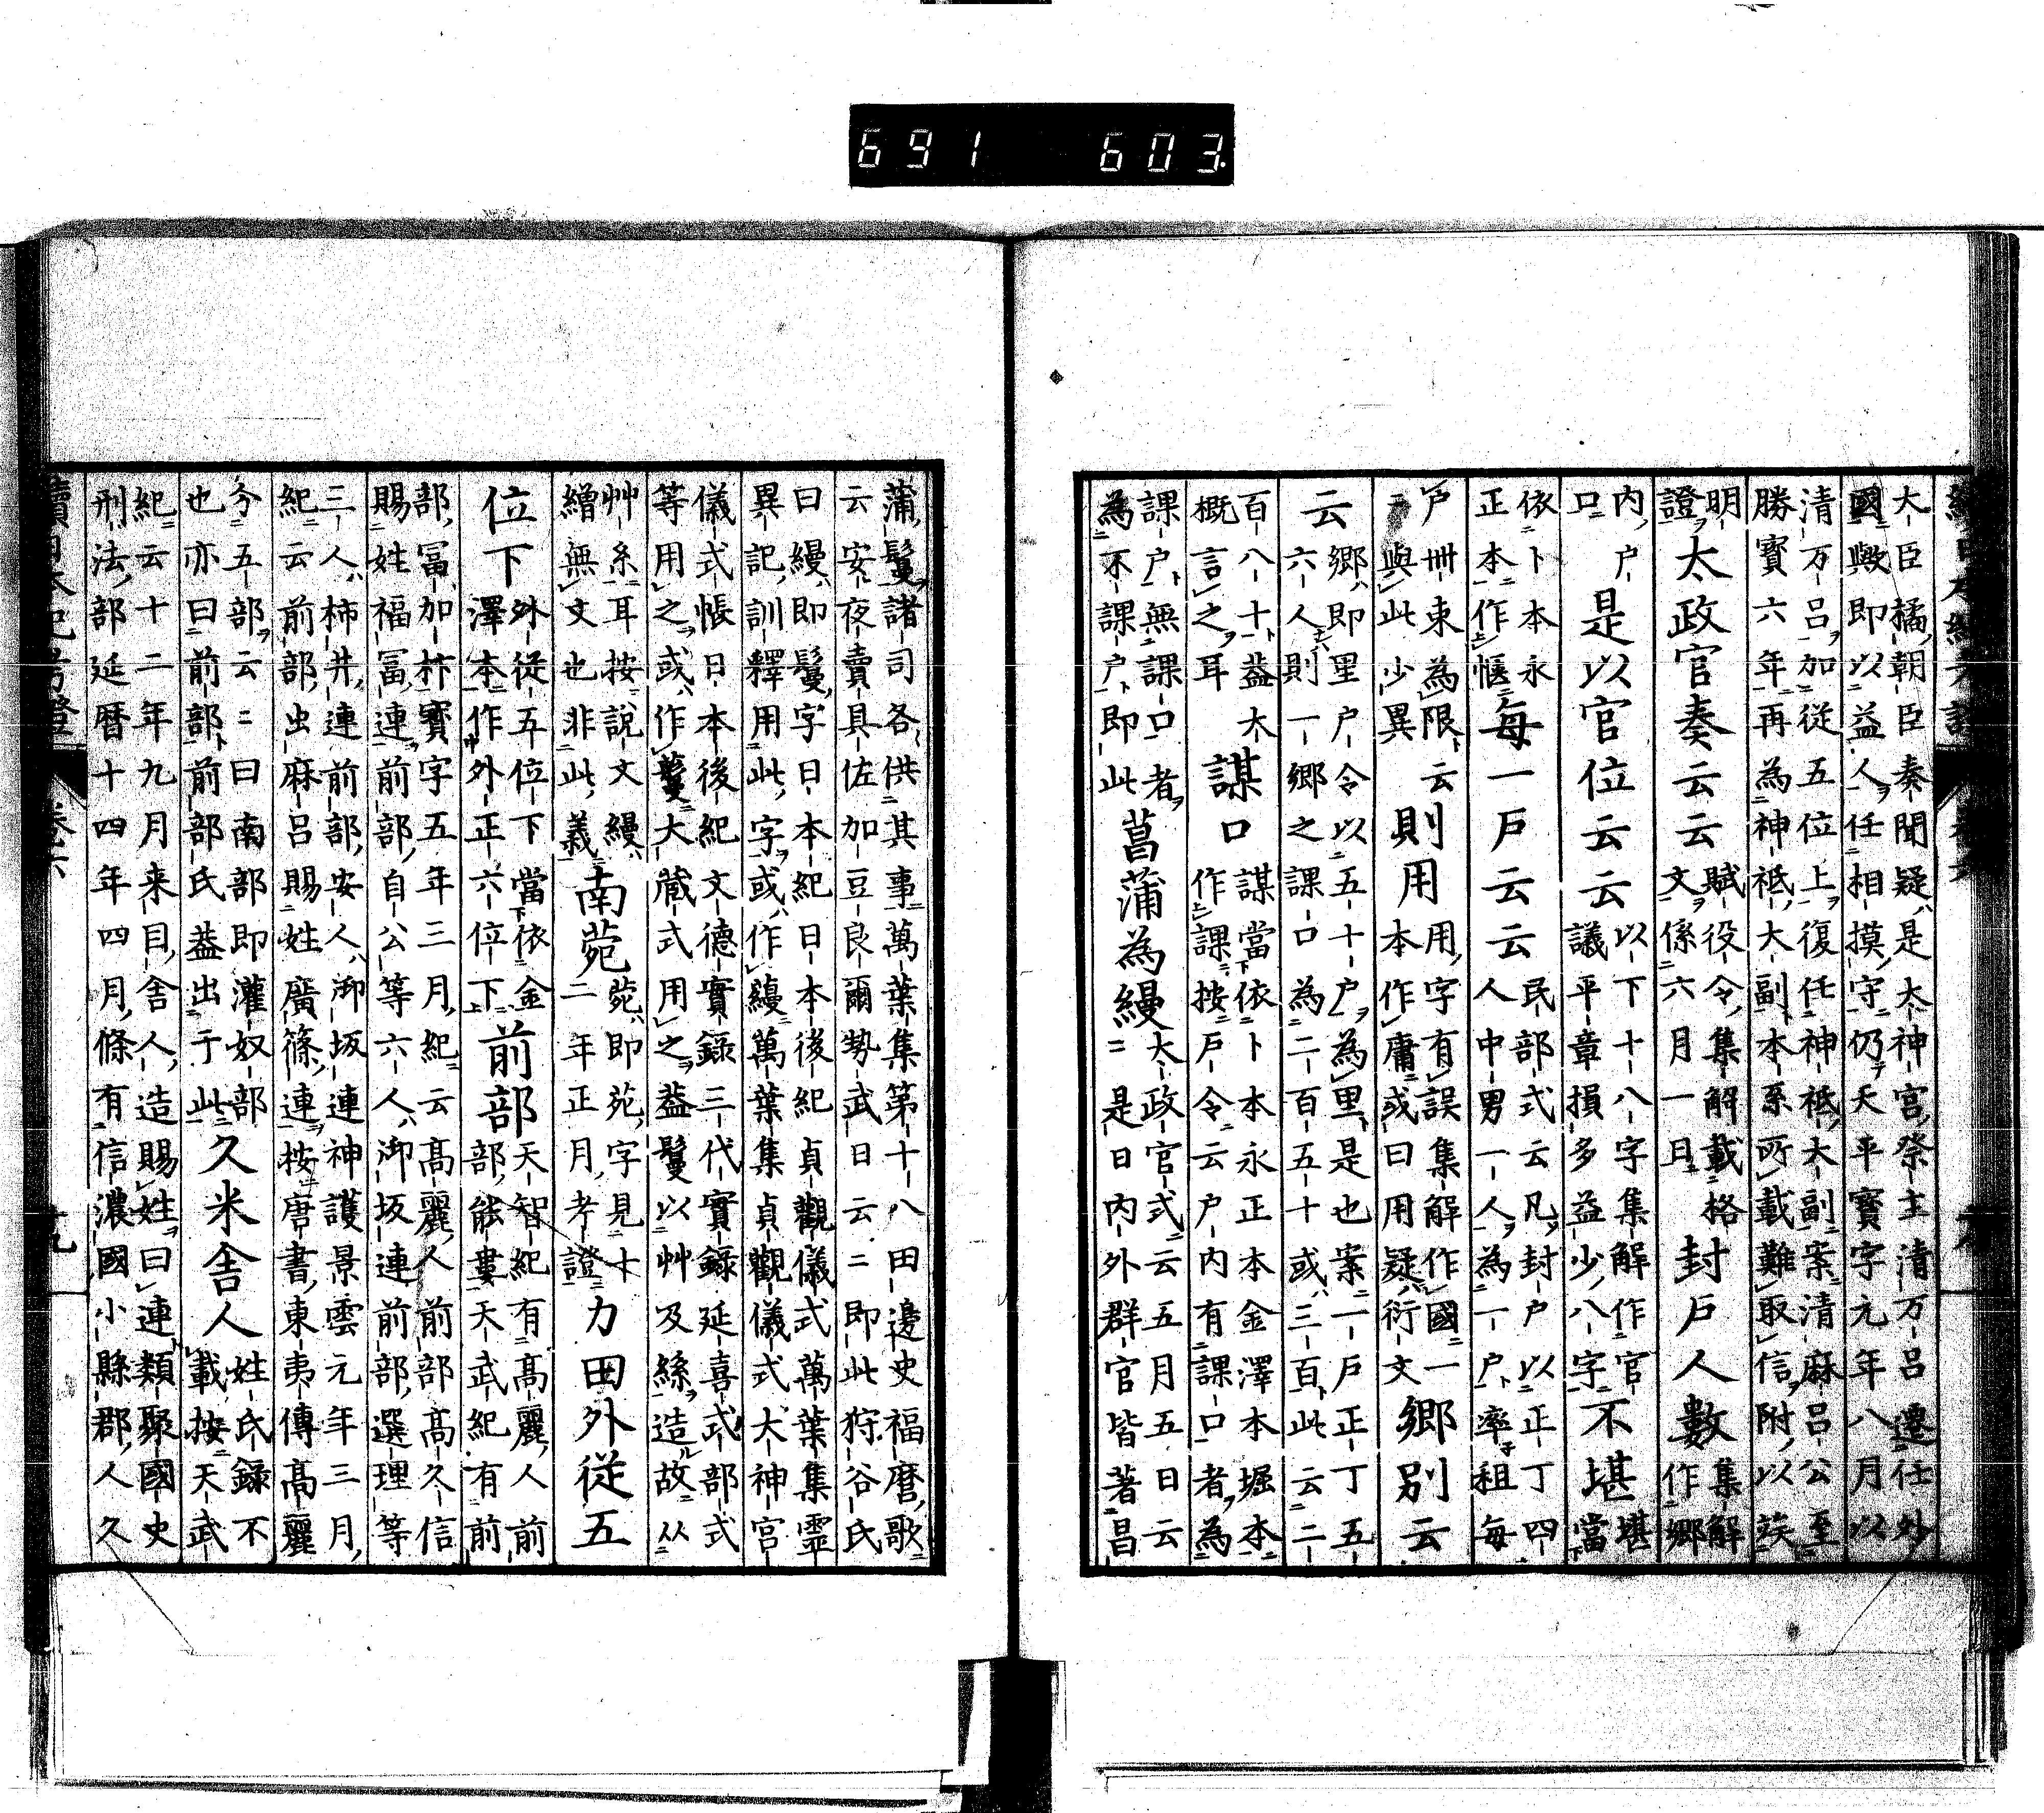 691 603
大臣橘朝臣奏聞疑是太神宮祭主清万呂遷任外
國歟即以益人任相摸守仍天平寶字元年八月以
清万呂加從五位上復任神祇大副案清麻呂公至
勝寶六年再為神祇大副本系所載難取信附以竢
明證太政官奏云云賦役令集解載格文係六月一日封戶人數集解作鄉
內戶口是以官位云云以下十八字集解作官議平章損多益少八字不堪堪當
依卜本永正本作愜每一戶云云民部式云凡封戶以正丁四人中男一人為一戶率租每
戶卌束為限云云與此少異則用用字有誤集解作國一本作庸或曰用疑衍文鄉別云
云鄉即里戶令以五十戶為里是也案一戶正丁五六人則一鄉之課口為二百五十或三百此云二
百八十蓋大概言之耳謀口謀當依卜本永正本金澤本堀本作課按戶令云戶內有課口者為
課戶無課口者為不課戶即此菖蒲為縵太政官式云五月五日云云是日內外群官皆著昌
蒲鬘諸司各供其事萬葉集第十八田邊史福麿歌
云安夜賣具佐加豆良爾勢武日云云即此狩谷氏
曰縵即鬘字日本紀日本後紀貞觀儀式萬葉集靈
異記訓釋用此字或作蘰萬葉集貞觀儀式大神宮
儀式帳日本後紀文德實錄三代實錄延喜式部式
等用之或作蔓大藏式用之蓋鬘以艸及絲造故从
艸糸耳按說文縵繒無文也非此義南苑苑即苑字見十二年正月考證力田外從五
位下外從五位下當依金澤本作外正六位下前部天智紀有高麗人前部能婁天武紀有前
部富加抃寶字五年三月紀云高麗人前部高久信
賜姓福富連前部自公等六人御坂連前部選理等
三人柿井連前部安人御坂連神護景雲元年三月
紀云前部虫麻呂賜姓廣篠連按唐書東夷傳高麗
今五部云云曰南部即灌奴部也亦曰前部前部氏蓋出于此久米舍人姓氏錄不載按天武
紀云十二年九月来目舍人造賜姓曰連類聚國史
刑法部延暦十四年四月條有信濃國小縣郡人久
續日本紀考證 卷六 十九